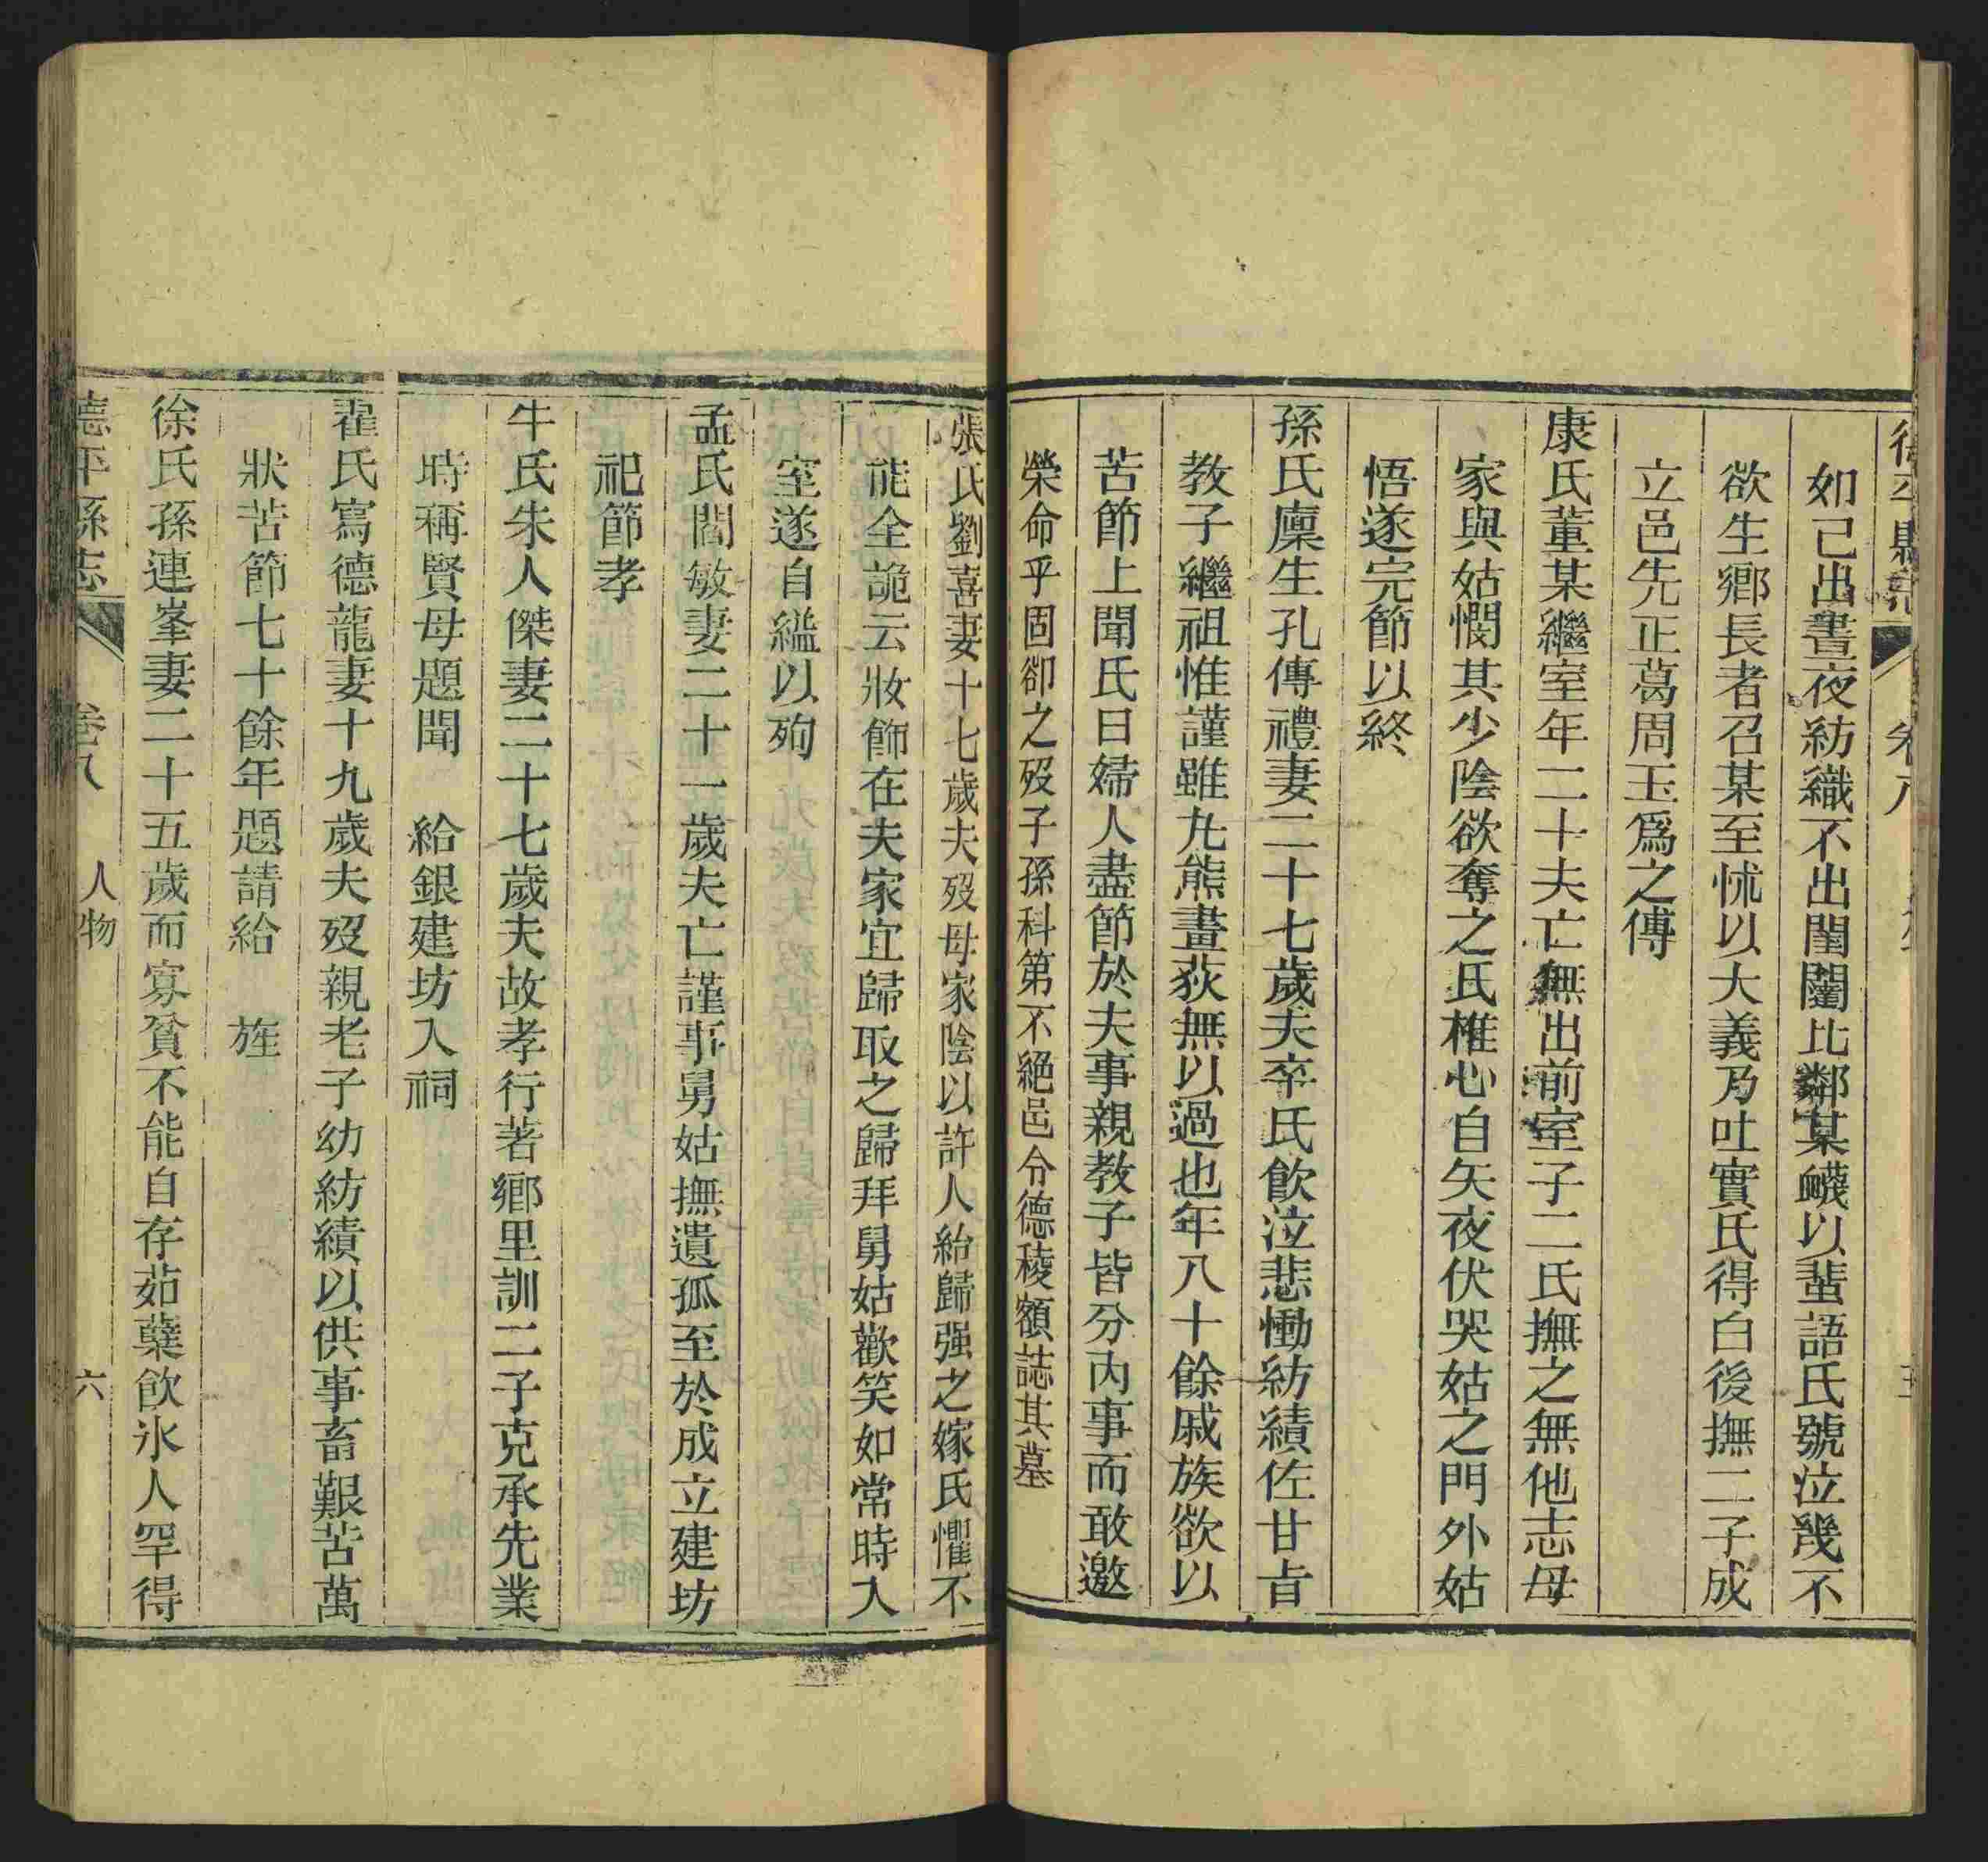 德平縣志 卷八
如己出晝夜紡織不出閨闥比鄰某衊以蜚語氏號泣幾不
欲生鄉長者召某至怵以大義乃吐實氏得白後撫二子成
立邑先正葛周玉爲之傳
康氏董某繼室年二十夫亡無出前室子二氏撫之無他志母
家與姑憫其少陰欲奪之氏椎心自矢夜伏哭姑之門外姑
悟遂完節以終
孫氏廩生孔傳禮妻二十七歲夫卒氏飮泣悲慟紡績佐甘旨
教子繼祖惟謹雖丸熊畫荻無以過也年八十餘戚族欲以
苦節上聞氏曰婦人盡節於夫事親教子皆分內事而敢邀
榮命乎固卻之歿子孫科第不絕邑令德稜額誌其墓
張氏劉喜妻十七歲夫歿母家陰以許人紿歸强之嫁氏懼不
能全詭云妝飾在夫家宜歸取之歸拜舅姑歡笑如常時入
室遂自縊以殉
孟氏閻敏妻二十一歲夫亡謹事舅姑撫遺孤至於成立建坊
祀節孝
牛氏朱人傑妻二十七歲夫故孝行著鄉里訓二子克承先業
時稱賢母題聞 給銀建坊入祠
翟氏寫德龍妻十九歲夫歿親老子幼紡績以供事畜艱苦萬
狀苦節七十餘年題請給 旌
徐氏孫連峯妻二十五歲而寡貧不能自存茹蘗飮氷人罕得
德平縣志 卷八 人物 六